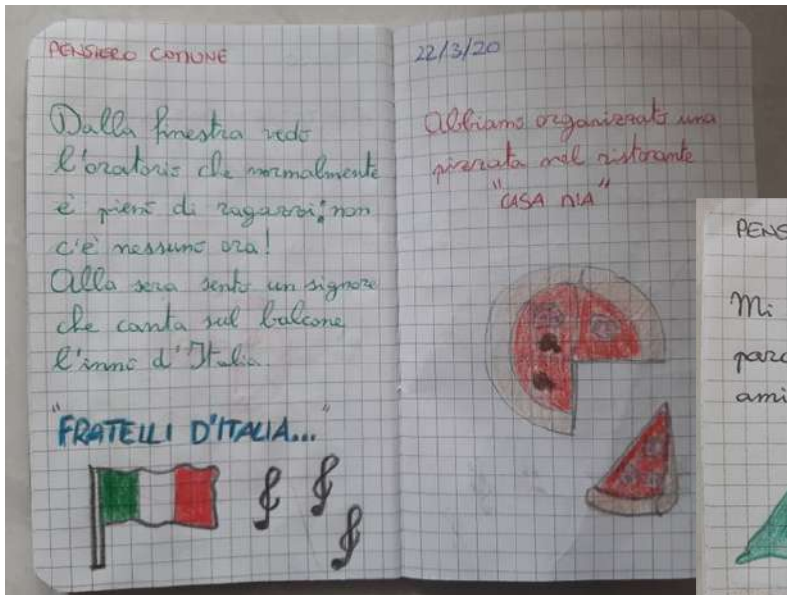 PENSIERO COMUNE
Dalla finestra vedo
l'oratorio che normalmente
è pieno di ragazzi; non
c'è nessuno ora!
Alla sera sento un signore
che canta sul balcone
l'inno d'Italia.
"FRATELLI D'ITALIA..."
22/3/20
Abbiamo organizzato una
pizzata nel ristorante
"CASA MIA"
PENS
Mi
parc
ami